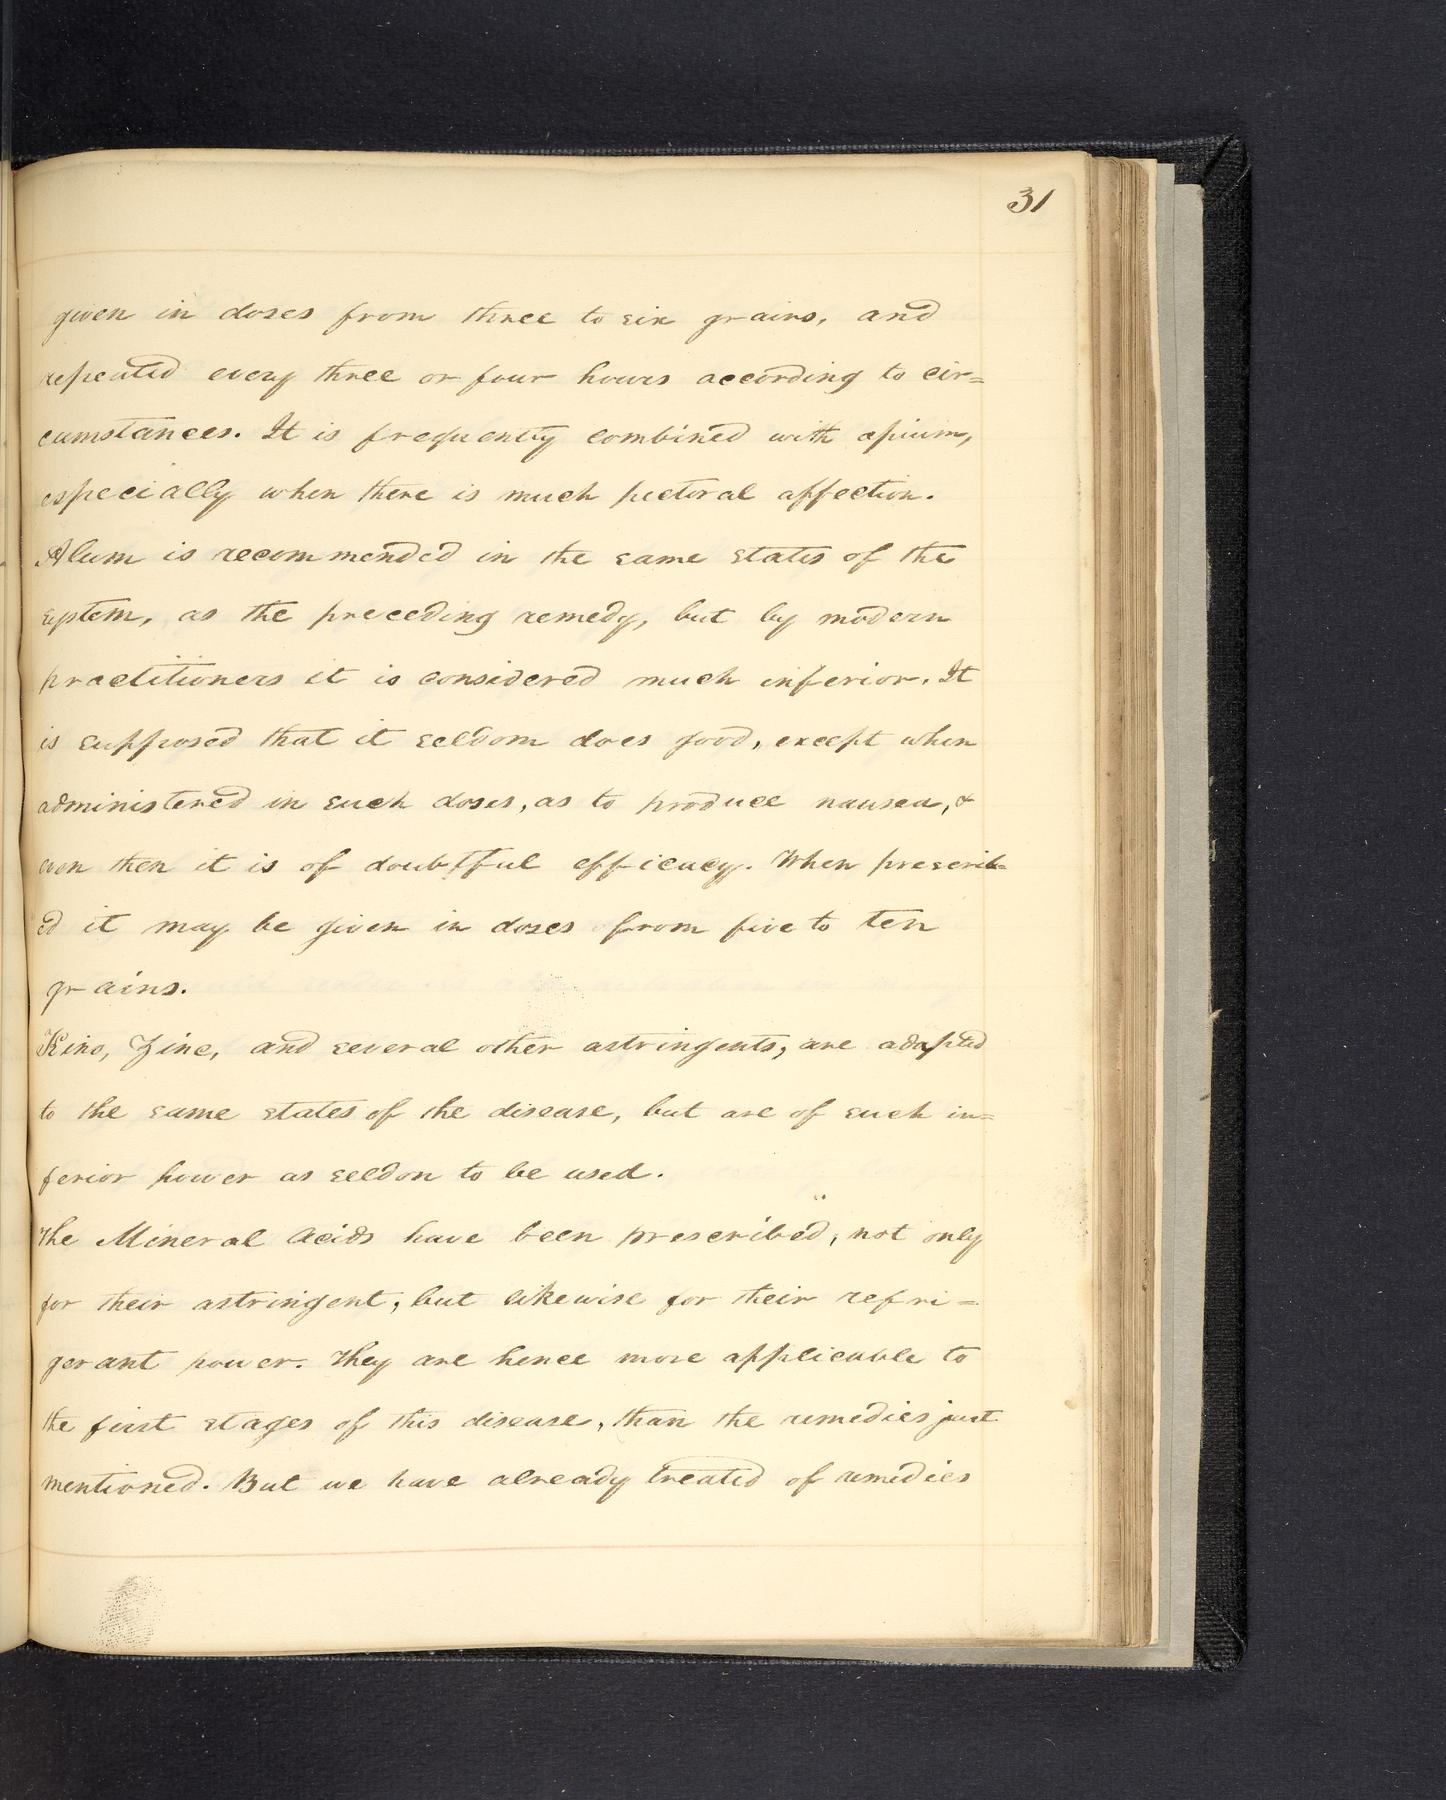 31
given in doses from three to six grains, and
repeated every three or four hours according to cir=
cumstances. It is frequently combined with opium,
especially when there is much pectoral affection.
Alum is recommended in the same states of the
system, as the preceding remedy, but by modern
practitioners it is considered much inferior. It
is supposed that it seldom does good, except when
administered in such doses, as to produce nausea, &
even then it is of doubtful efficacy. When prescrib=
ed it may be given in doses from five to ten
grains.
Kino, Zinc, and several other astringents, are adapted
to the same states of the disease, but are of such in=
ferior power as seldon to be used.
The Mineral Acids have been prescribed, not only
for their astringent, but likewise for their refri=
gerant power. They are hence more applicable to
the first stages of this disease, than the remedies just
mentioned. But we have already treated of remedies